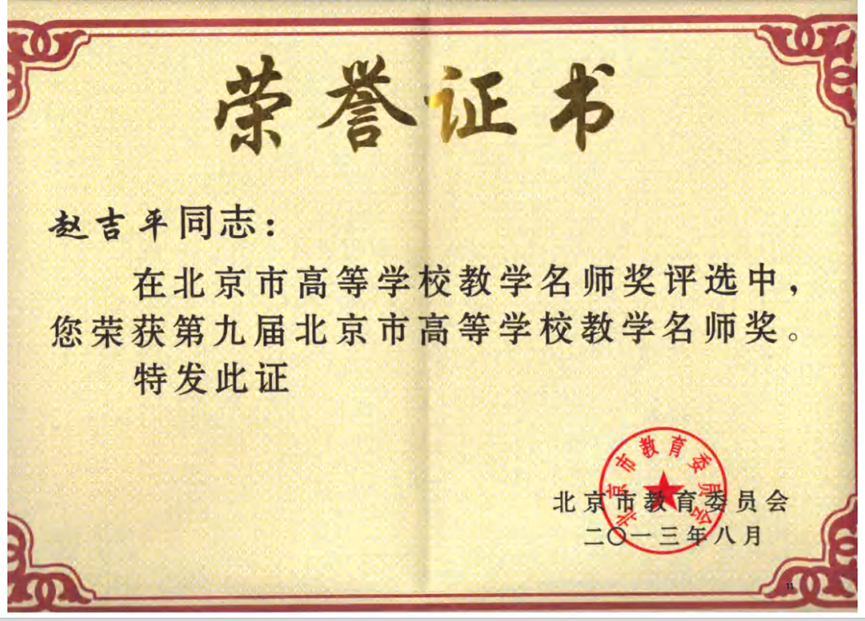 荣誉证书
赵吉平同志：
在北京市高等学校教学名师奖评选中，
您荣获第九届北京市高等学校教学名师奖。
特发此证
北京市教育委员会
北京市教育委员会
二〇一三年八月
11